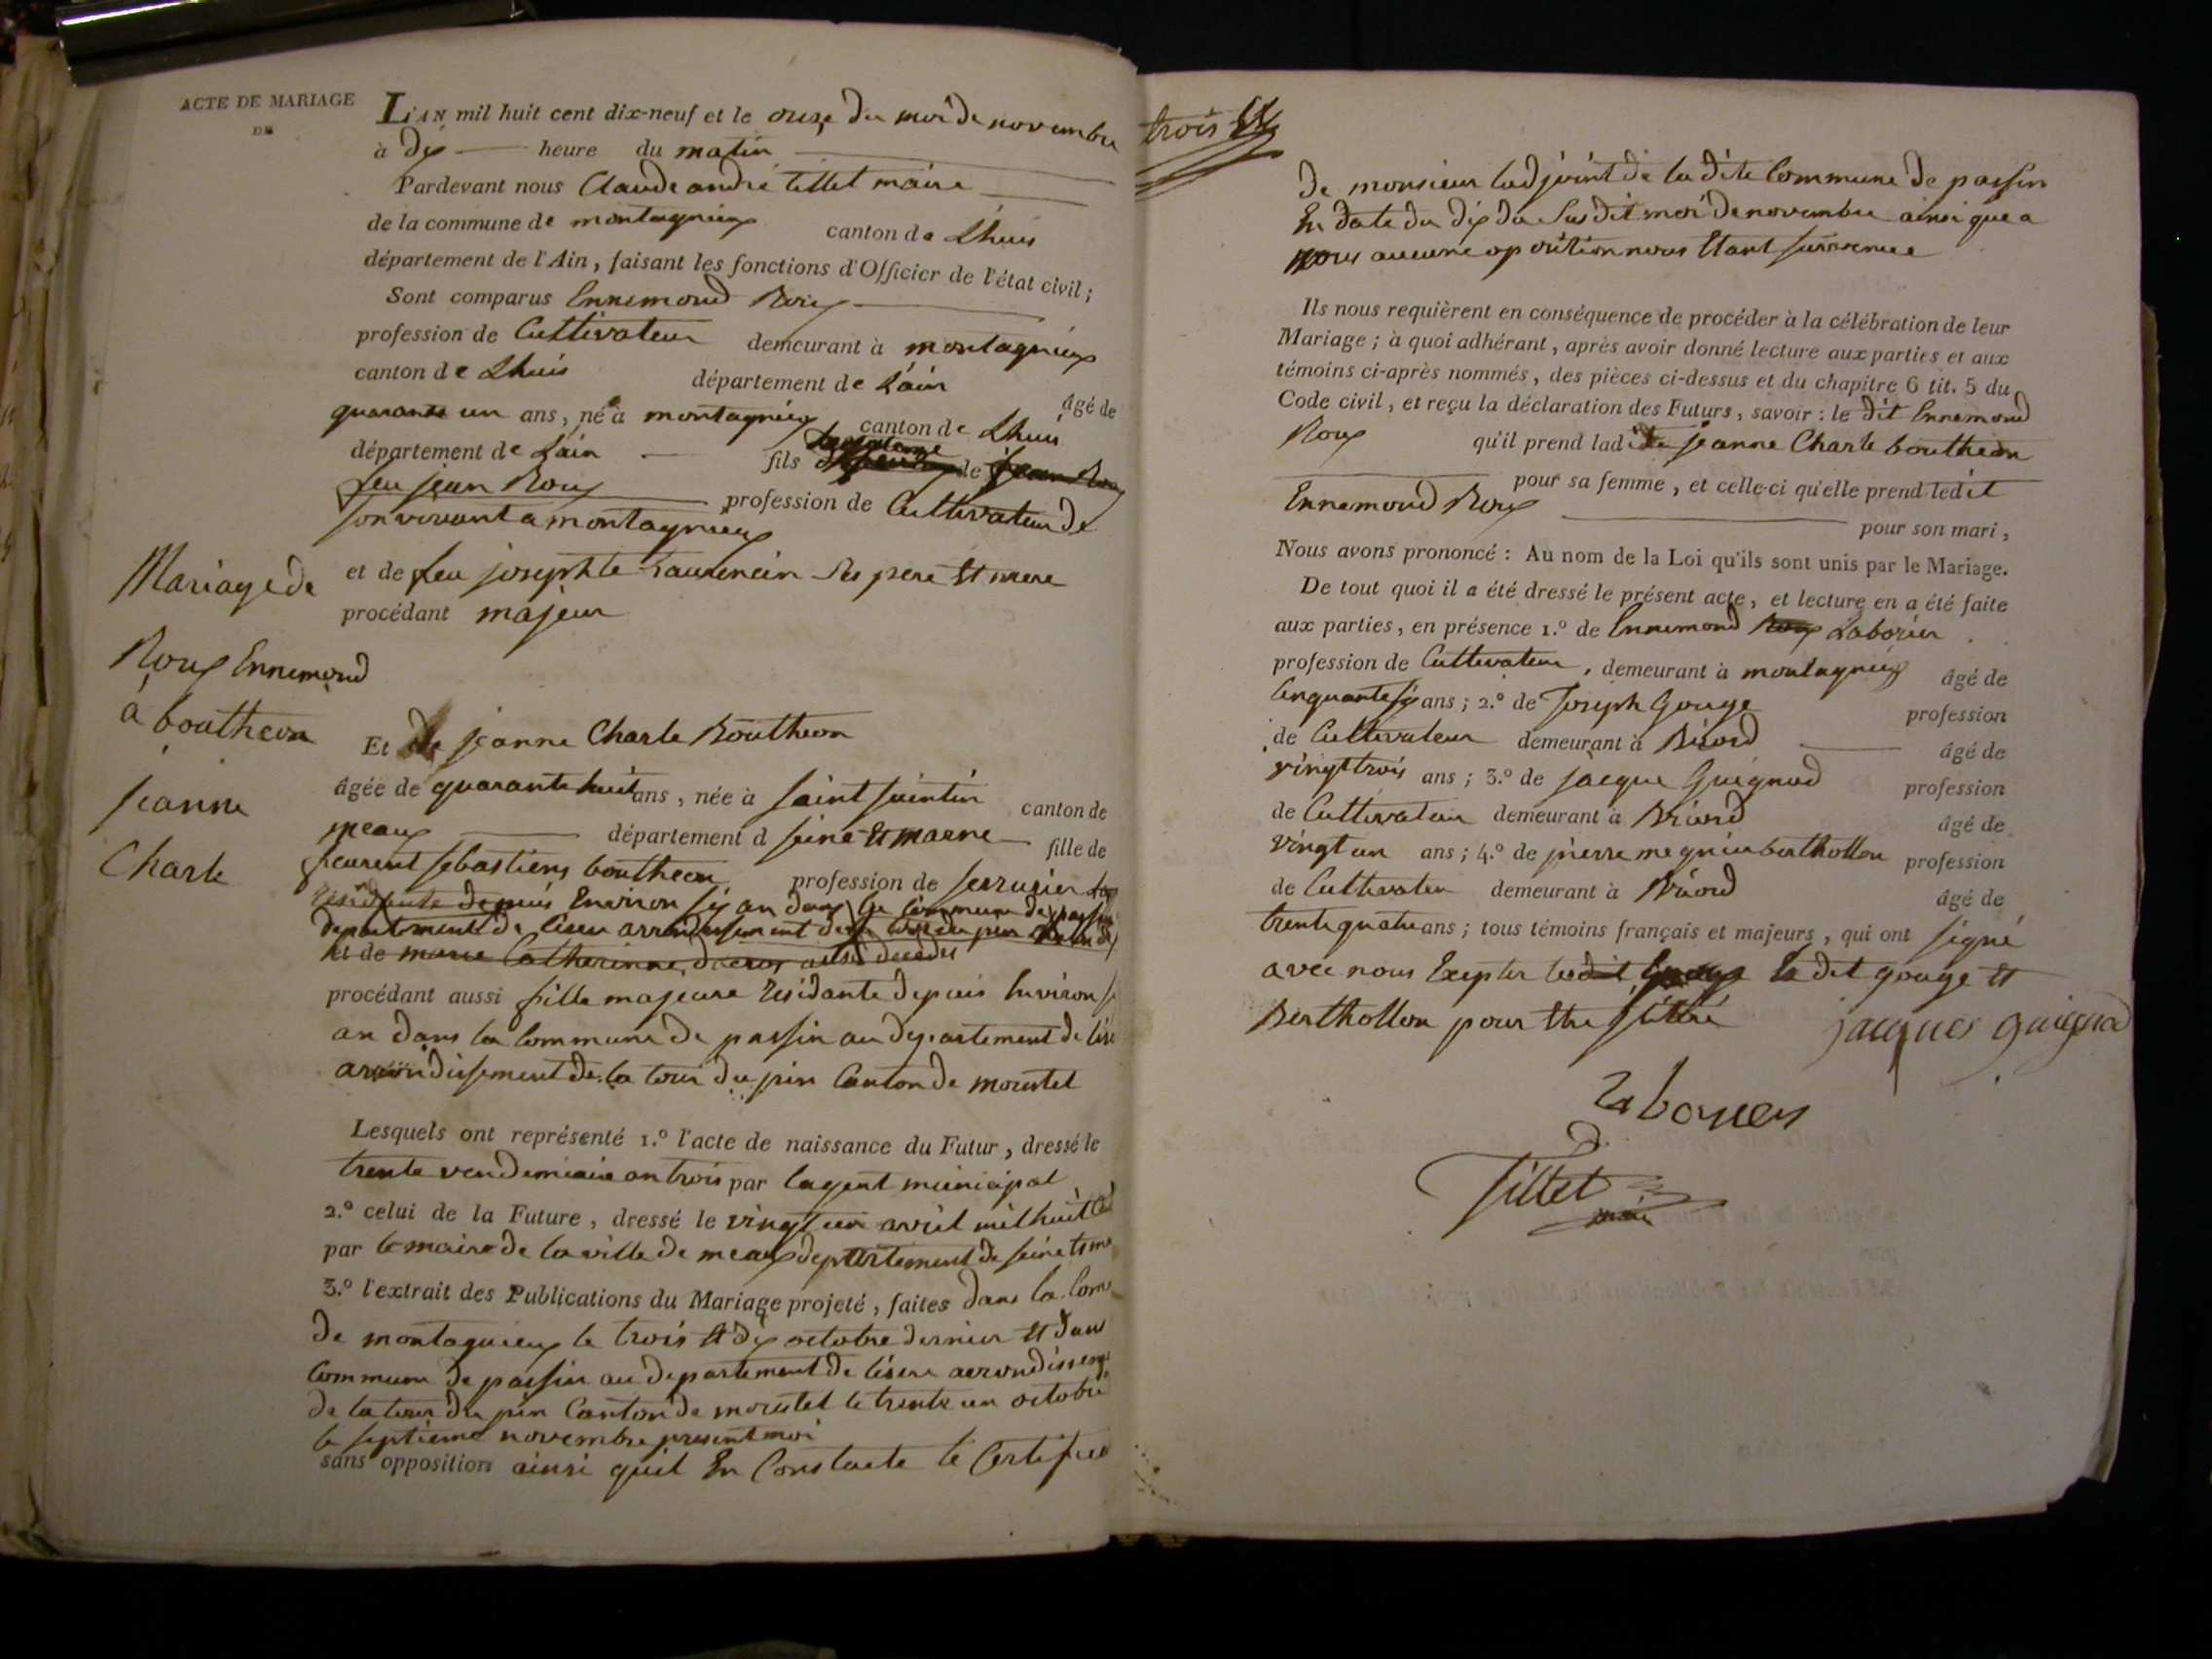 ACTE DE MARIAGE
DE
L'AN mil huit cent dix-neuf et le onze du moi de novembre
à dix heure du matin
Pardevant nous Claude andré tillet maire
de la commune de montagnieux canton de Lhuis
département de l'Ain, faisant les fonctions d'Officier de l'état civil ;
Sont comparus Ennemond Roux
profession de Cultivateur demeurant à montagnieux
canton de Lhuis département de Lain âgé de
quarante un ans, né à montagnieux canton de Lhuis
département de Lain fils de
feu jean Roux profession de Cultivateur de
son vivant a montagnieux
et de feu josephte Laurencin Ses pere Et mere
procédant majeur
Mariage de
Roux Ennemond
à boutheon
jeanne
Charle
Et de jeanne Charle Boutheon
âgée de quarante huit ans, née à saint saintin canton de
meaux département d seine Et marne fille de
feu Sebastiens boutheon profession de serrurier
residente depuis Environ six an dans la commune de passin
departement de liseu arrondissement de la tour du pin
et de marie Catherinne ausi decedes
procédant aussi fille majeure residante depuis Environ
an dans la Commune de passin au departement de lise
arrondissement de la tour du pin Canton de morestel
Lesquels ont représenté 1.º l'acte de naissance du Futur, dressé le
trente vendemiaire an trois par lagent municipal
2.º celui de la Future, dressé le vingt un avril mil huit
par le maire de la ville de meaux departement de seine
3.º l'extrait des Publications du Mariage projeté, faites dans la Com
de montagnieux le trois Et dix octobre dernier Et dans
Commune de passin au departement de lisere arrondissem
de la tour du pin Canton de morestel le trente un octobre
le septieme novembre present moi
sans opposition ainsi quil En Constaste le Certificat
trois
de monsieur ladjoint de la dite Commune de passin
En date du dix du Susdit moi de novembre ainsi que a
nous aucune oposition nous Etant survenue
Ils nous requièrent en conséquence de procéder à la célébration de leur
Mariage ; à quoi adhérant, après avoir donné lecture aux parties et aux
témoins ci-après nommés, des pièces ci-dessus et du chapitre 6 tit. 5 du
Code civil, et reçu la déclaration des Futurs, savoir : le dit Ennemond
Roux qu'il prend ladite jeanne Charle boutheon
pour sa femme, et celle-ci qu'elle prend ledit
Ennemond Roux pour son mari,
Nous avons prononcé : Au nom de la Loi qu'ils sont unis par le Mariage.
De tout quoi il a été dressé le présent acte, et lecture en a été faite
aux parties, en présence 1.º de Ennemond Roux Laborier
profession de Cultivateur, demeurant à montagnieux âgé de
Cinquante six ans ; 2.º de Joseph Gouge profession
de Cultivateur demeurant à Briord âgé de
vingt trois ans ; 3.º de jacque Guignod profession
de Cultivateur demeurant à Briord âgé de
vingt un ans ; 4.º de pierre megnieu berthollon profession
de Cultivateu demeurant à Briord âgé de
trente quatre ans ; tous témoins français et majeurs, qui ont signé
avec nous Excepter ledit Gouge Ledit gouge Et
Berthollon pour
jacques guignod
Laborier
Tillet
maire